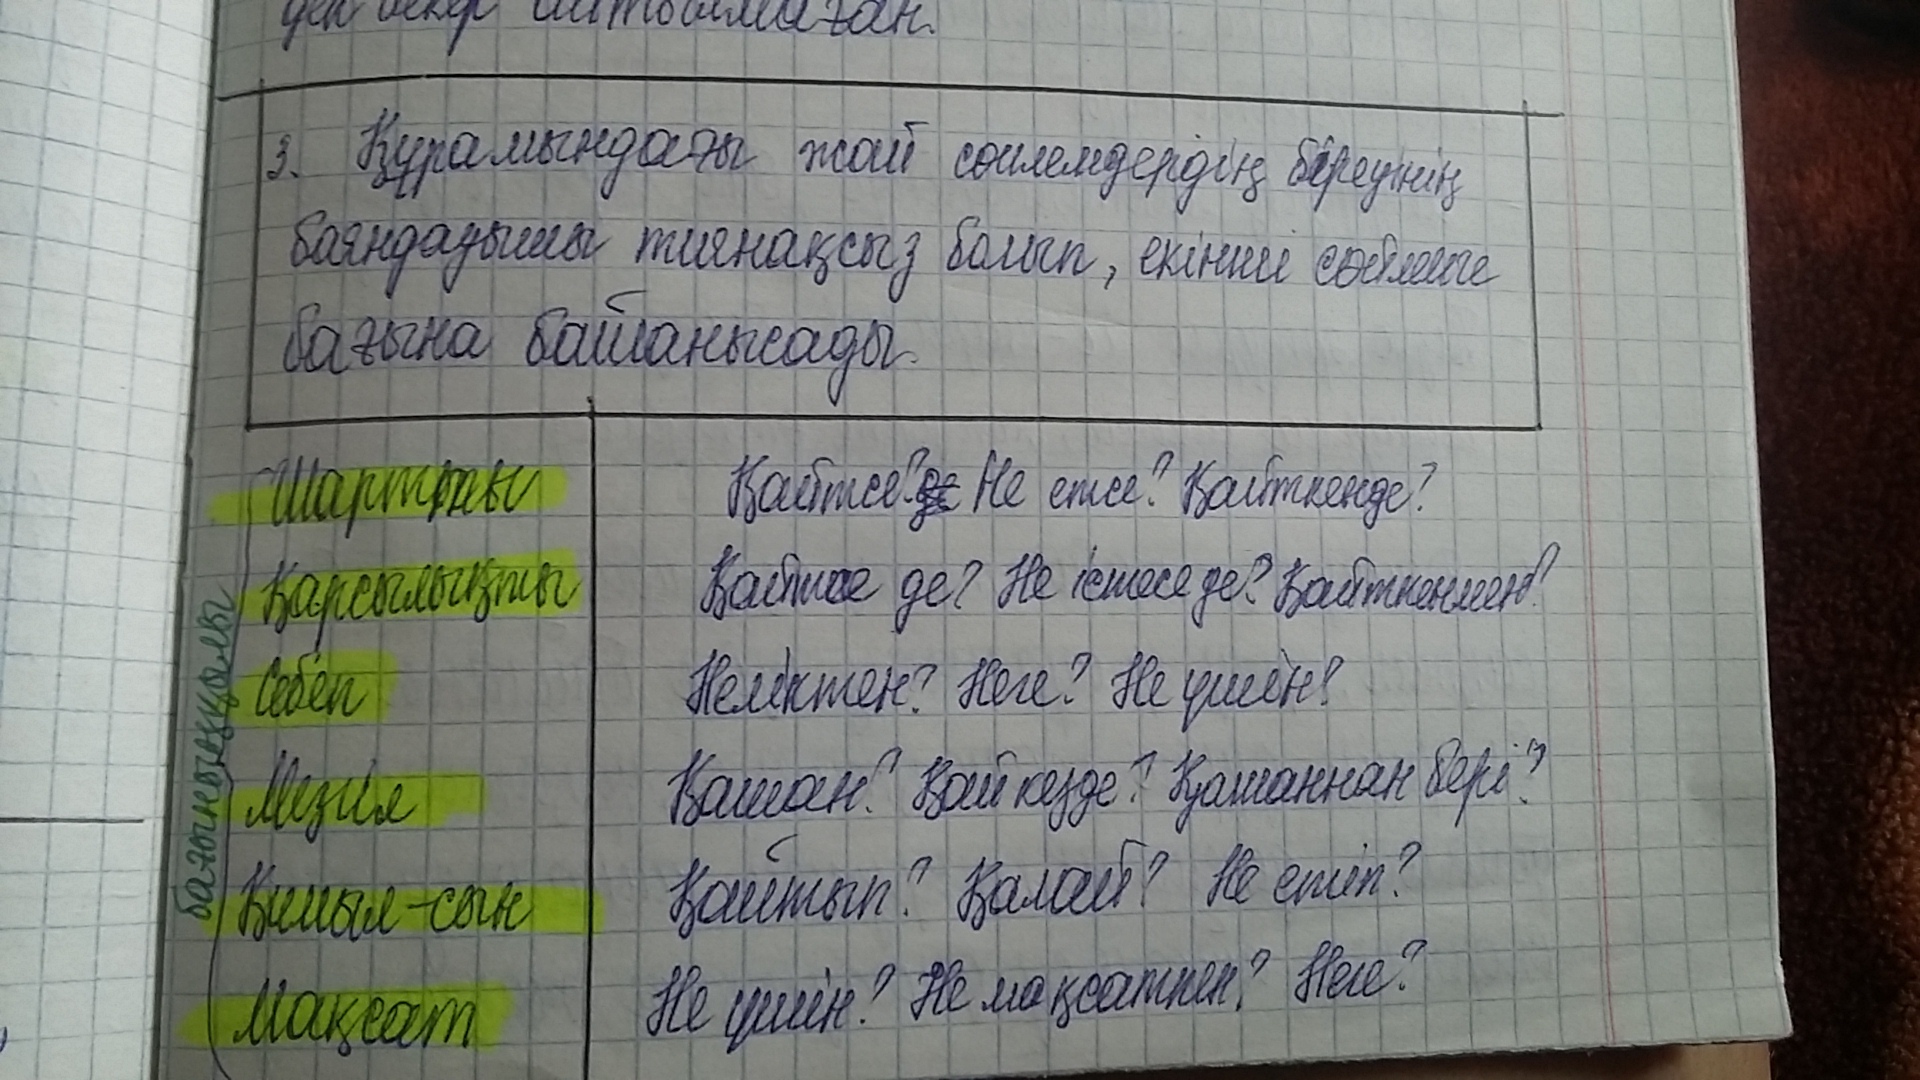 айтылмаған.
3. Құрамындағы жай сөйлемдердің біреуінің
баяндауышы тиянақсыз болып, екінші сөйлемге
бағына байланысады.
бағыныңқылы
Шартты Қайтсе? Не етсе? Қайткенде?
Қарсылықты Қайтсе де? Не істесе де? Қайткенмен?
Себеп Неліктен? Неге? Не үшін?
Мезгіл Қашан? Қай кезде? Қашаннан бері?
Қимыл-сын Қайтып? Қалай? Не етіп?
Мақсат Не үшін? Не мақсатпен? Неге?